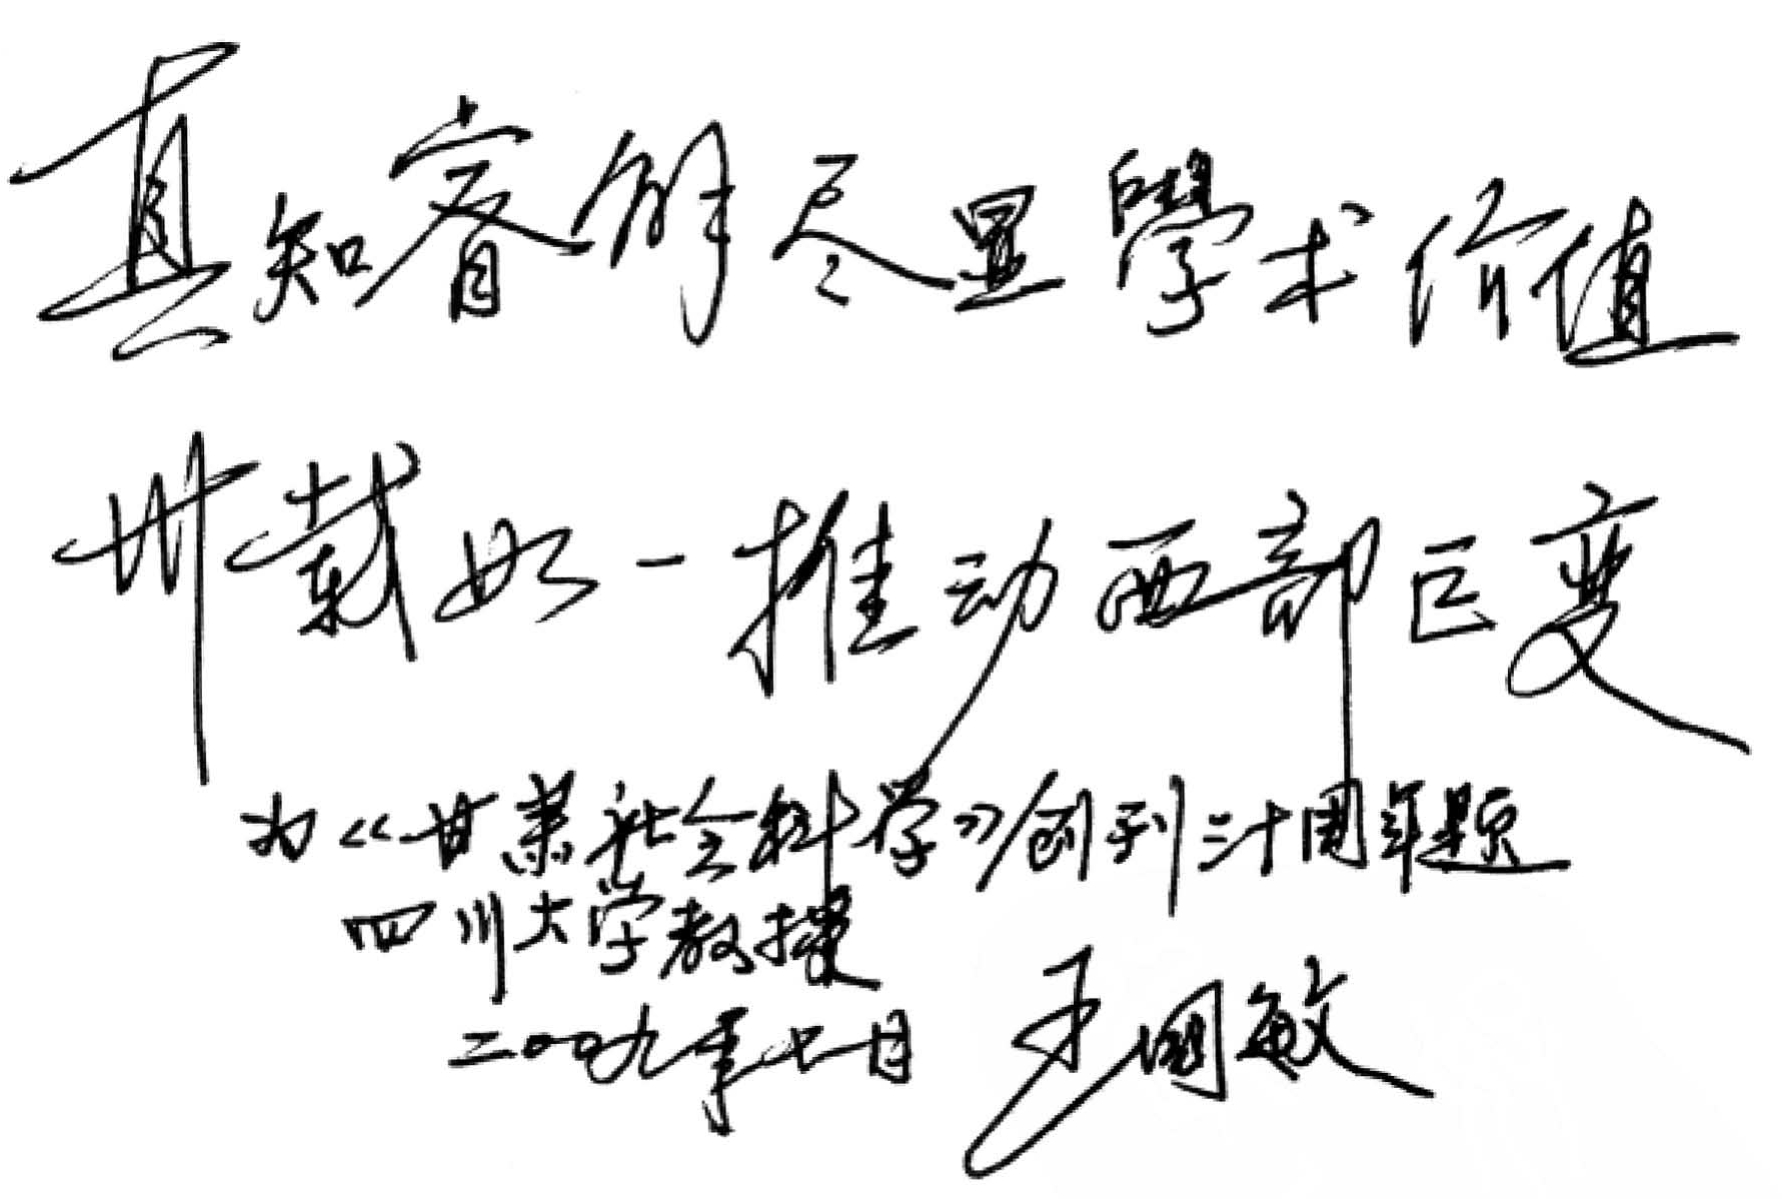 真知睿解尽显學术价值
卅载如一推动西部巨变
为《甘肃社会科学》创刊三十周年题
四川大学教授
二〇〇九年七月 王国敏